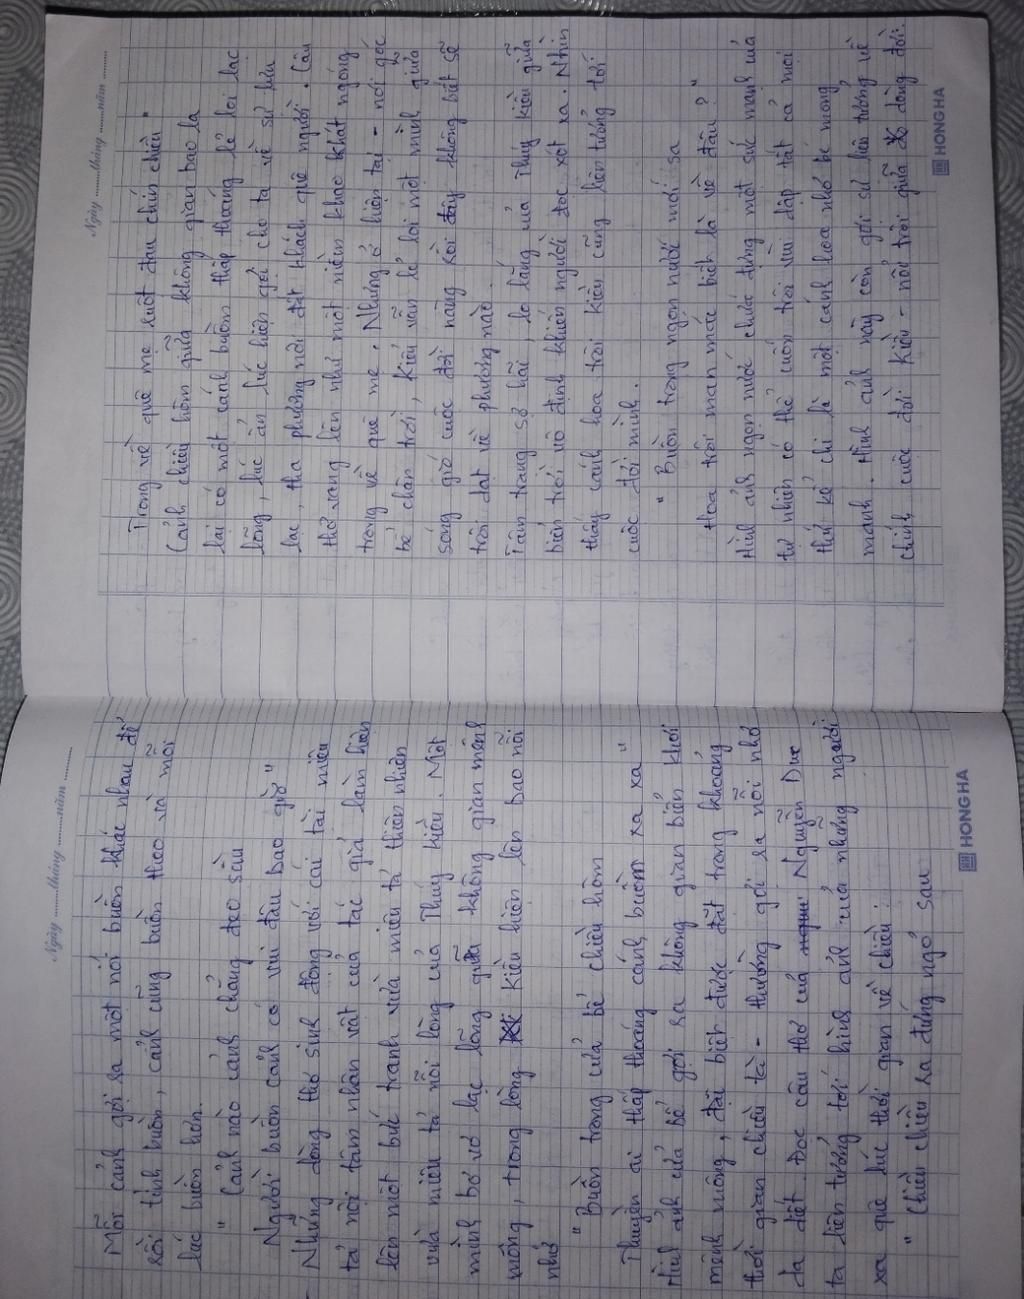 Ngày ......... tháng ......... năm .........
Mỗi cảnh gợi ra một nỗi buồn khác nhau để
rồi tình buồn, cảnh cũng buồn theo và mỗi
lúc buồn hơn.
" Cảnh nào cảnh chẳng đeo sầu
Người buồn cảnh có vui đâu bao giờ "
Những dòng thơ sinh động với cái tài miêu
tả nội tâm nhân vật của tác giả lần hiện
lên một bức tranh vừa miêu tả thiên nhiên
vừa miêu tả nỗi lòng của Thúy Kiều. Một
mình bơ vơ lạc lõng giữa không gian mênh
mông, trong lòng Kiều hiện lên bao nỗi
nhớ
" Buồn trông cửa bể chiều hôm
Thuyền ai thấp thoáng cánh buồm xa xa "
Hình ảnh cửa bể gợi ra không gian biển khơi
mênh mông, đặc biệt được đặt trong khoảng
thời gian chiều tà - thường gợi ra nỗi nhớ
da diết. Đọc câu thơ của Nguyễn Du
ta liên tưởng tới hình ảnh của những người
xa quê lúc thời gian về chiều :
" Chiều chiều ra đứng ngõ sau
HONG HA
Ngày ......... tháng ......... năm .........
Trông về quê mẹ ruột đau chín chiều "
Cảnh chiều hôm giữa không gian bao la
lại có một cánh buồm thấp thoáng lẻ loi lạc
lõng, lúc ẩn lúc hiện gợi cho ta về sự lưu
lạc, tha phương nơi đất khách quê người. Câu
thơ vang lên như một niềm khao khát ngóng
trông về quê mẹ. Nhưng ở hiện tại - nơi góc
bể chân trời, Kiều vẫn lẻ loi một mình giữa
sóng gió cuộc đời nàng rồi đây không biết sẽ
trôi dạt về phương nào.
Tâm trạng sợ hãi, lo lắng của Thúy Kiều giữa
biển trời vô định khiến người đọc xót xa. Nhìn
thấy cánh hoa trôi Kiều cũng liên tưởng tới
cuộc đời mình.
" Buồn trông ngọn nước mới sa
Hoa trôi man mác biết là về đâu ? "
Hình ảnh ngọn nước chứa đựng một sức mạnh của
tự nhiên có thể cuốn trôi vùi dập tất cả mọi
thứ kể chi là một cánh hoa nhỏ bé mong
manh. Hình ảnh này còn gợi sự liên tưởng về
chính cuộc đời Kiều - nổi trôi giữa dòng đời.
HONG HA